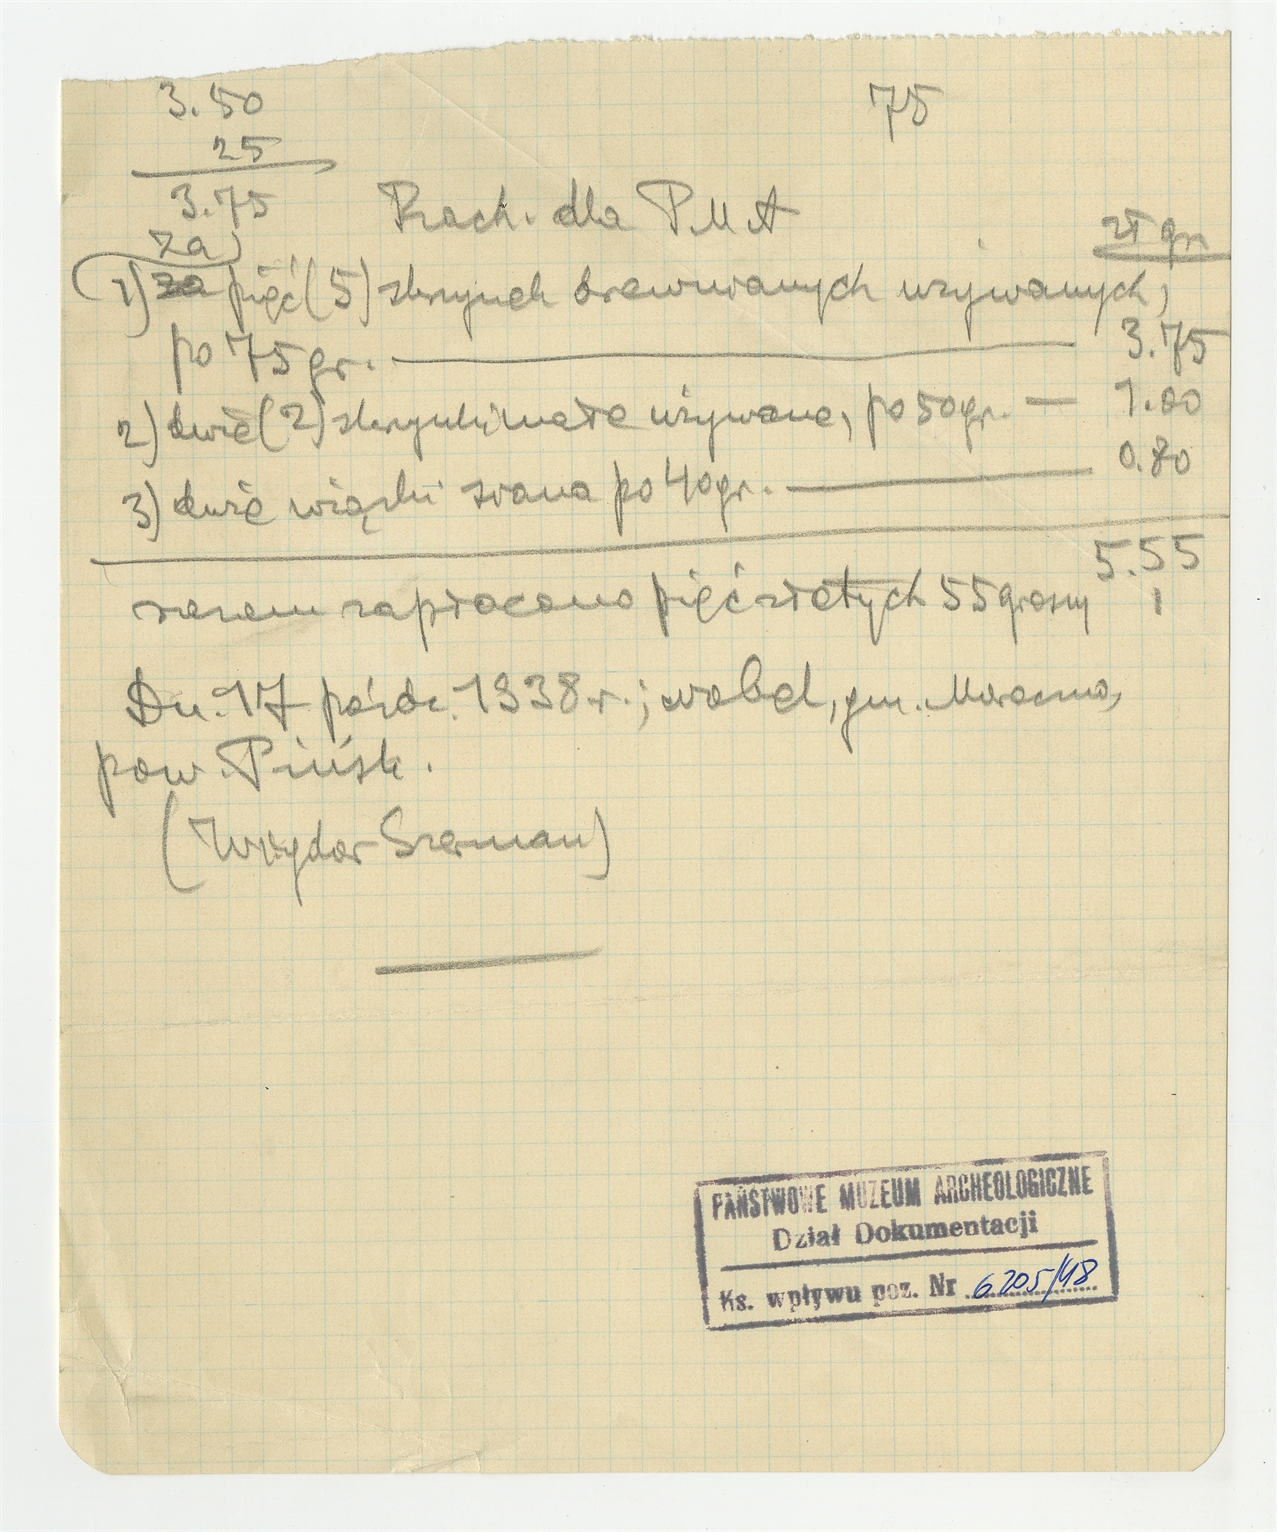 3.50
25
3.75
75
Rach. dla P M A
zł gr
za
1) za pięć (5) skrzynek drewnianych używanych,
po 75 gr. — 3.75
2) dwie (2) skrzynki małe używane, po 50 gr. — 1.00
3) dwie wiązki siana po 40 gr. — 0.80
5.55
razem zapłacono pięć złotych 55 groszy
Dn. 17 paźdz. 1938 r.; gm. Moroczno,
pow. Pińsk.
( Szerman)
PAŃSTWOWE MUZEUM ARCHEOLOGICZNE
Dział Dokumentacji
Ks. wpływu poz. Nr 6205/48